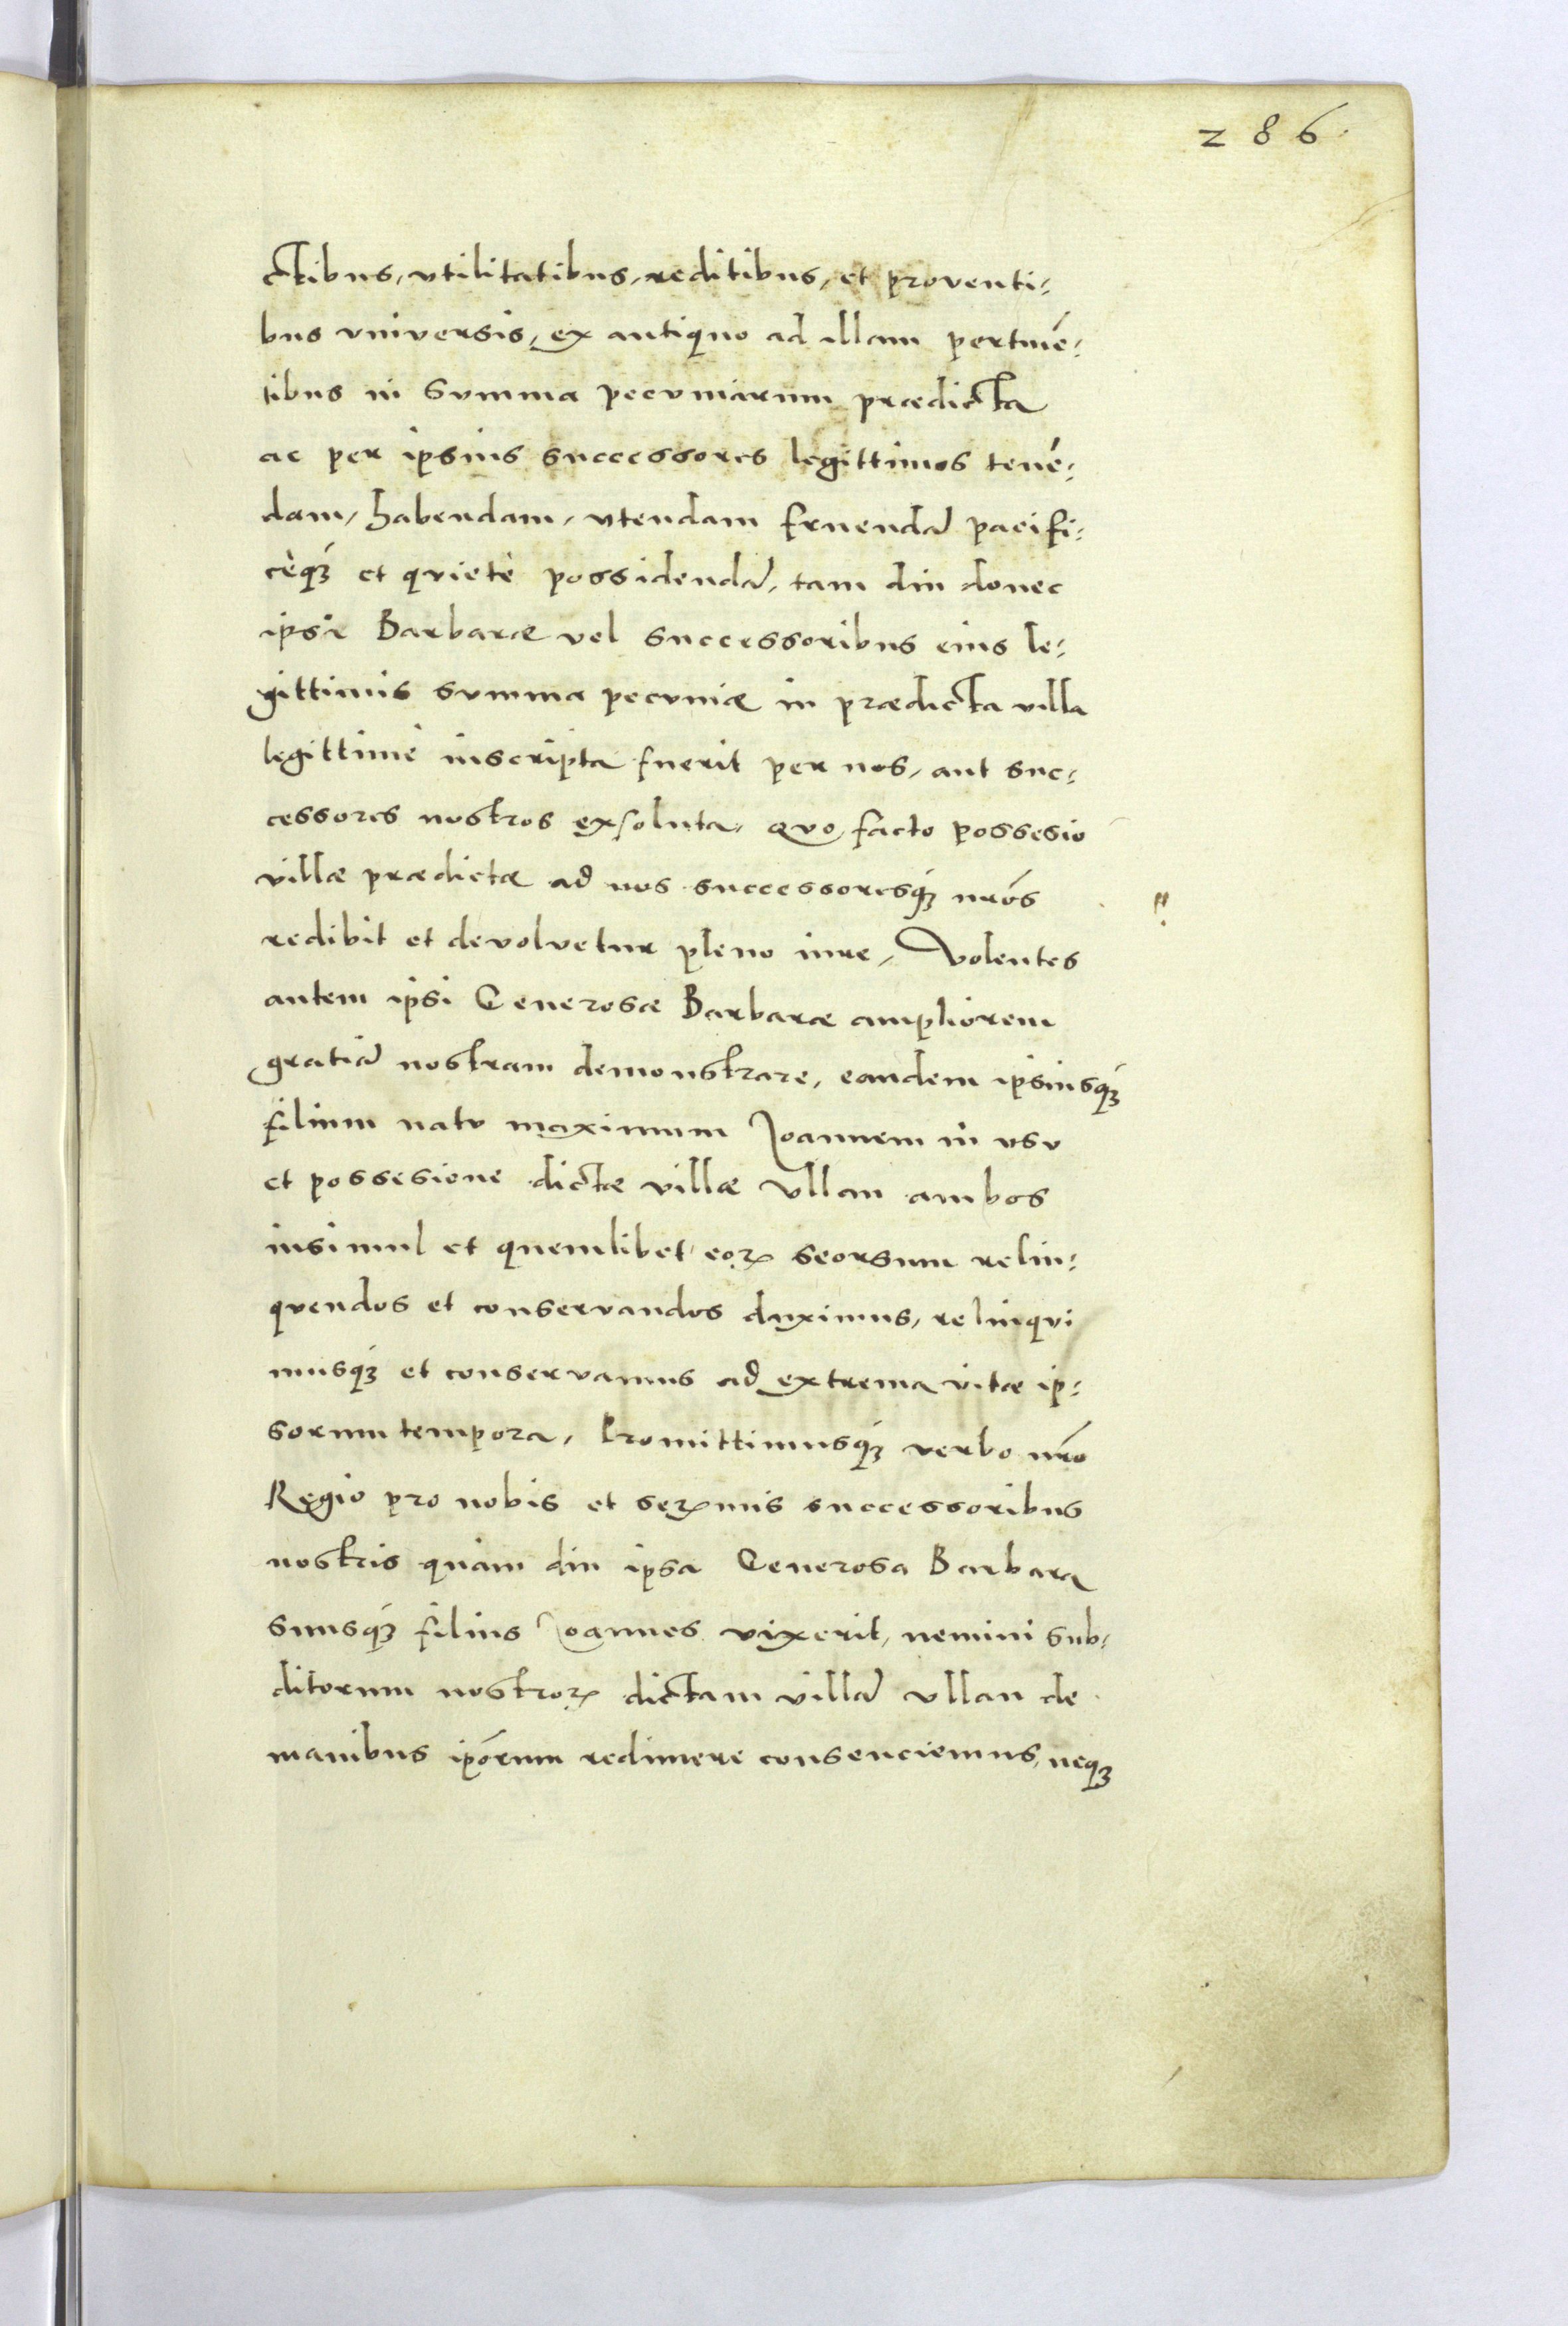 286
ctibus, vtilitatibus, reditibus, et proventi:
bus vniversis, ex antiquo ad illam pertinē:
tibus in Summa pecuniarum prædicta
ac per ipsius successores legittimos tenē:
dam, habendam, vtendam fruendā pacifi:
cèqꝫ et quietè possidendā, tam diu donec
ipsi Barbaræ vel successoribus eius le:
gittimis summa pecuniæ in prædicta villa
legittimè inscripta fuerit per nos, aut suc:
cessores nostros exsoluta, quo facto possesio
villæ prædictæ ad nos successoresqꝫ nr̄os
redibit et devolvetur pleno iure, Volentes
autem ipsi Generosæ Barbaræ ampliorem
gratiā nostram demonstrare, eandem ipsiusqꝫ
filium natu maximum Joannem in vsu
et possesione dictæ villæ Vllan ambos
insimul et quemlibet eoꝝ seorsum relin:
quendos et conservandos duximus, relinqui
musqꝫ et conservamus ad extrema vitæ ip:
sorum tempora, Promittimusqꝫ verbo nr̄o
Regio pro nobis et serꝫmis successoribus
nostris quàm diu ipsa Generosa Barbara
suusqꝫ filius Joannes vixerit, nemini sub:
ditorum nostroꝝ dictam villā Vllan de
manibus ip̄orum redimere consenciemus, neqꝫ